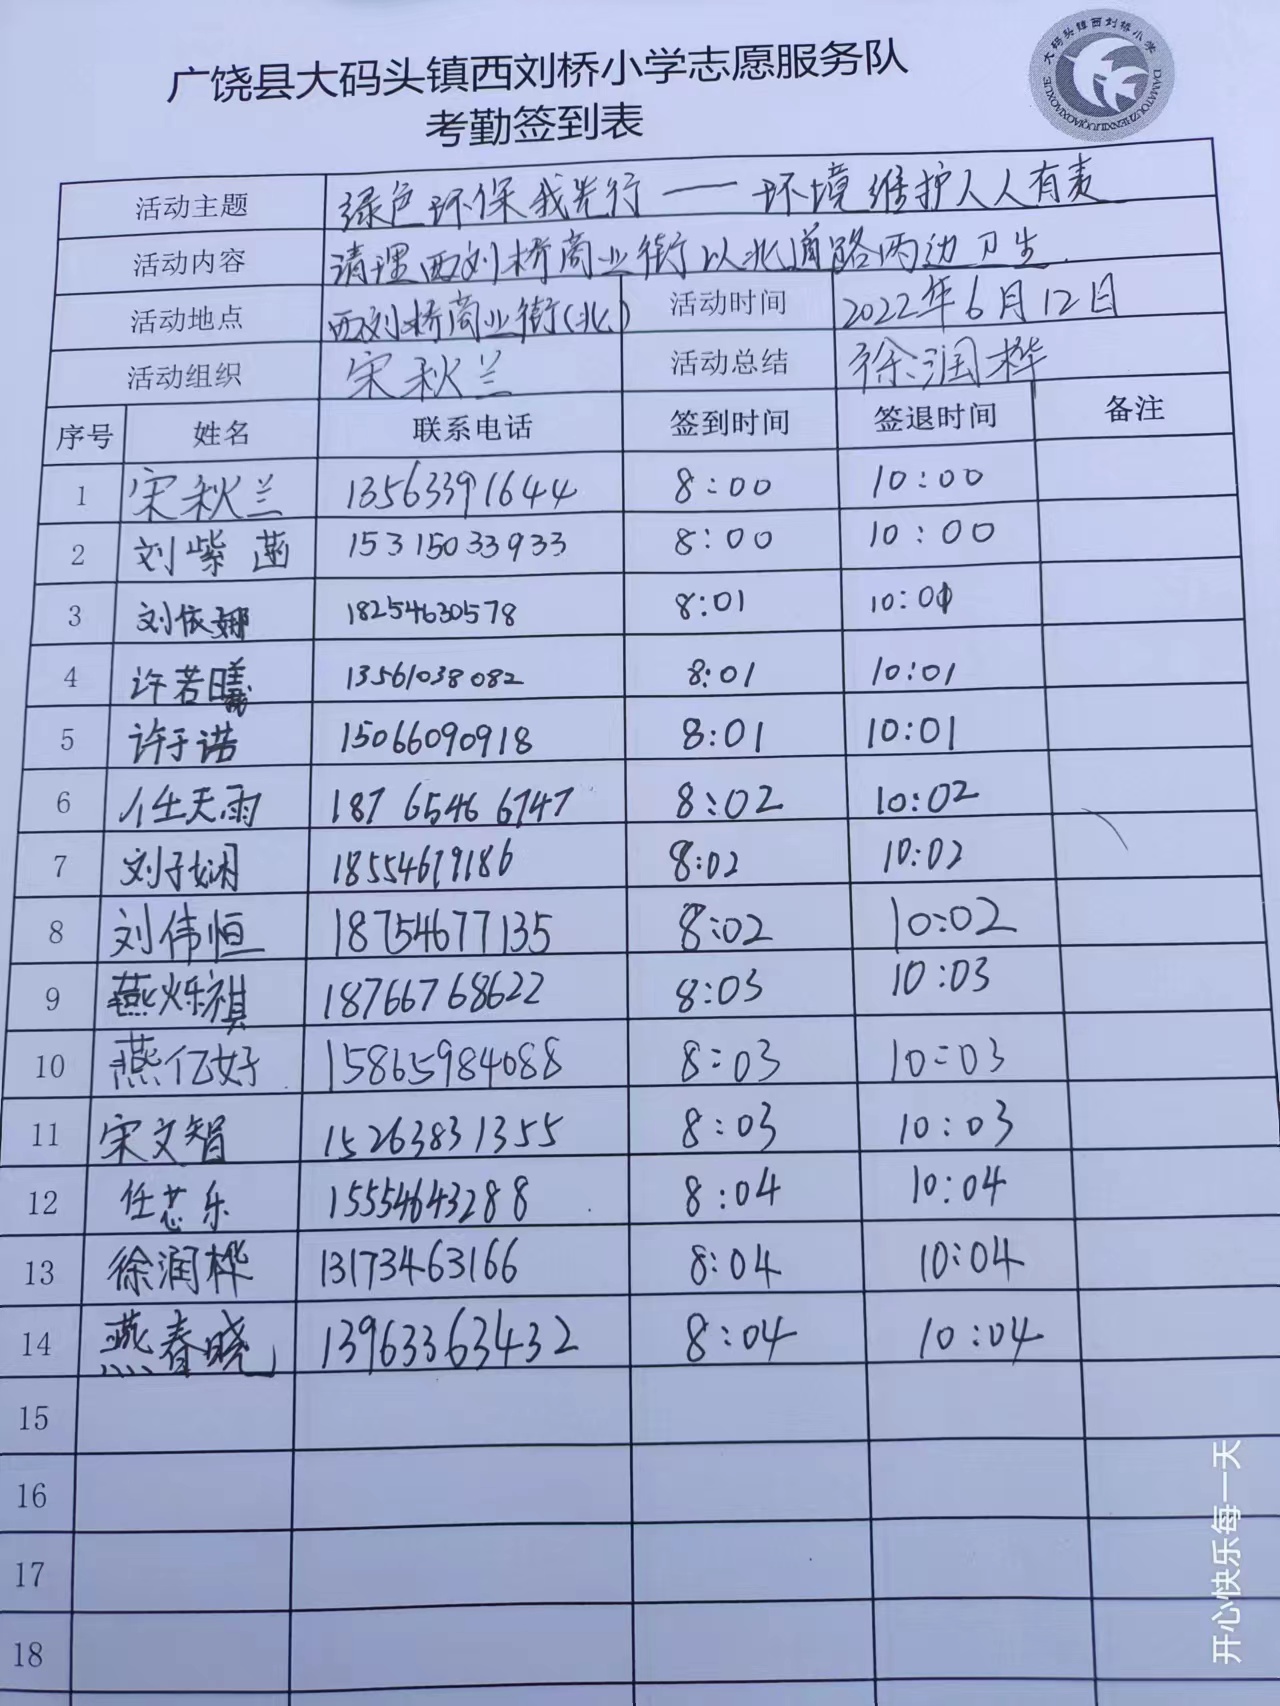 广饶县大码头镇西刘桥小学志愿服务队
考勤签到表
大码头镇西刘桥小学
DAMATOUZHENXILIUQIAOXIAOXUE
活动主题 绿色环保我先行——环境维护人人有责
活动内容 请理西刘桥商业街以北道路两边卫生.
活动地点 西刘桥商业街(北) 活动时间 2022年6月12日
活动组织 宋秋兰 活动总结 徐润桦
序号 姓名 联系电话 签到时间 签退时间 备注
1 宋秋兰 13563391644 8:00 10:00
2 刘紫菡 15315033933 8:00 10:00
3 刘依娜 18254630578 8:01 10:01
4 许若曦 13561038082 8:01 10:01
5 许子诺 15066090918 8:01 10:01
6 任天雨 18765466747 8:02 10:02
7 刘子娴 18554679186 8:02 10:02
8 刘伟恒 18754677135 8:02 10:02
9 燕烁祺 18766768622 8:03 10:03
10 燕亿好 15865984088 8:03 10:03
11 宋文智 15263831355 8:03 10:03
12 任芯乐 15554643288 8:04 10:04
13 徐润桦 13173463166 8:04 10:04
14 燕春晓 13963363432 8:04 10:04
15
16
17
18
开心快乐每一天